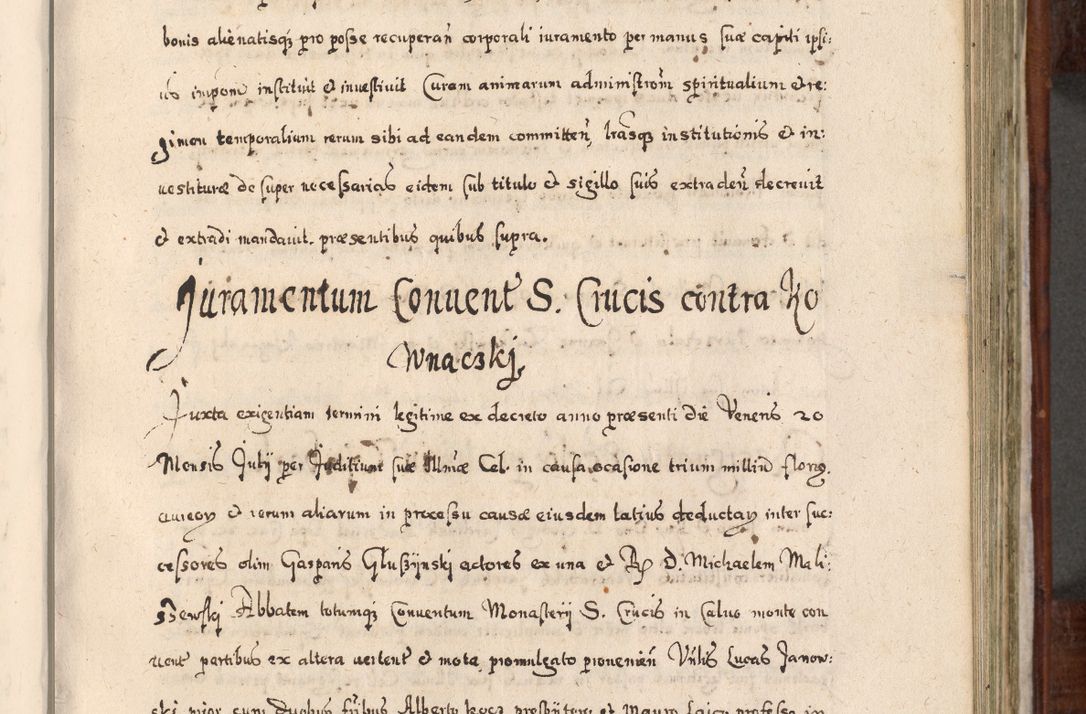 bonis alienatisq₃ pro posse recuperan̄ corporali iuramento per manus suæ capiti ipsi:
us impone instituit & inuestiuit Curam animarum administrōm̄ spiritualium & re:
gimen temporalium rerum sibi ad eandem committen̄, lrasq₃ institutionis & in:
uestituræ de super necessarias eidem sub titulo & sigillo suis extraden̄ decreuit
& extradi mandauit. præsentibus quibus supra.
Juramentum Conuent S. Crucis contra Ko
wnaczkj,
Juxta exigentiam termini legitime ex decreto anno præsenti die Veneris 20
Mensis Julij per Juditium suæ Illmæ Cel. in causa ocasione trium milliū floreg.
aureoy & rerum aliarum in processu causæ eiusdem latius deductay inter suc:
cessores olim Gasparis Głuszijnski actores ex una & R. D. Michaelem Mali:
szewskj Abbatem totumq₃ Conuentum Monasterij S. Crucis in Caluo monte con
uent partibus ex altera uertent & mota, promulgato prouenien̄ Vnlis Lucas Janow:
ski prior cum duobus frībus Alberto presbÿtero et Mauro Laico professo in